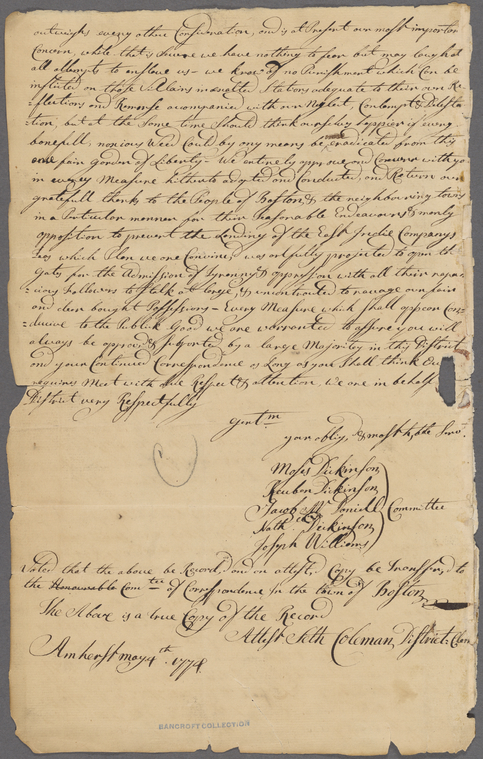 outweighs every other Consideration, and is at Present our most importan
Concern, while that is secure we have nothing to fear but may laugh at
all attempts to enslave us – we know of no Punishment which Can be
inflicted on those Villains in exalted Stations adequate to their own Re
flections and Remorse accompanied with our Neglect, Contempt & Detesta
tion, but at the Same time Should think ourselves happier if every
banefull, noxious Weed Could by any means be eradicated from this
fair Garden of Liberty – We entirely approve and Concur with you
in every Measure hitherto adopted and Conducted, and Return our
gratefull thanks to the People of Boston, & the neighbouring towns
in a Particular manner for their Seasonable Endeavours & manly
opposition to prevent the Landing of the East India Companys
Teas which Plan we are Convinced was artfully projected to open the
Gates for the Admission of tyranny & oppression with all their rapa
cious Followers to Stalk at large, & uncontrouled to ravage our fair
and dear bought Possessions – Every Measure which Shall appear Con
ducive to the Publick Good we are warranted to assure you will
always be approved & Supported by a large Majority in this District
and your Continued Correspondence as Long as you Shall think
requires Meet with due Respect & attention we are in behalf
District very Respectfully
Gentm
your oblig'd & most hble Servt
Moses Dickinson
Reuben Dickinson
Jacob Mc Daniell Committee
Nathll Dickinson
Joseph Williams
Voted that the above be Record'd and an attested Copy be Transferrd to
the Honourable Comtee of Correspondence In the town of Boston
The Above is a true Copy of the Record
Attest Seth Coleman, District Clerk
Amherst may 4th 1774
BANCROFT COLLECTION